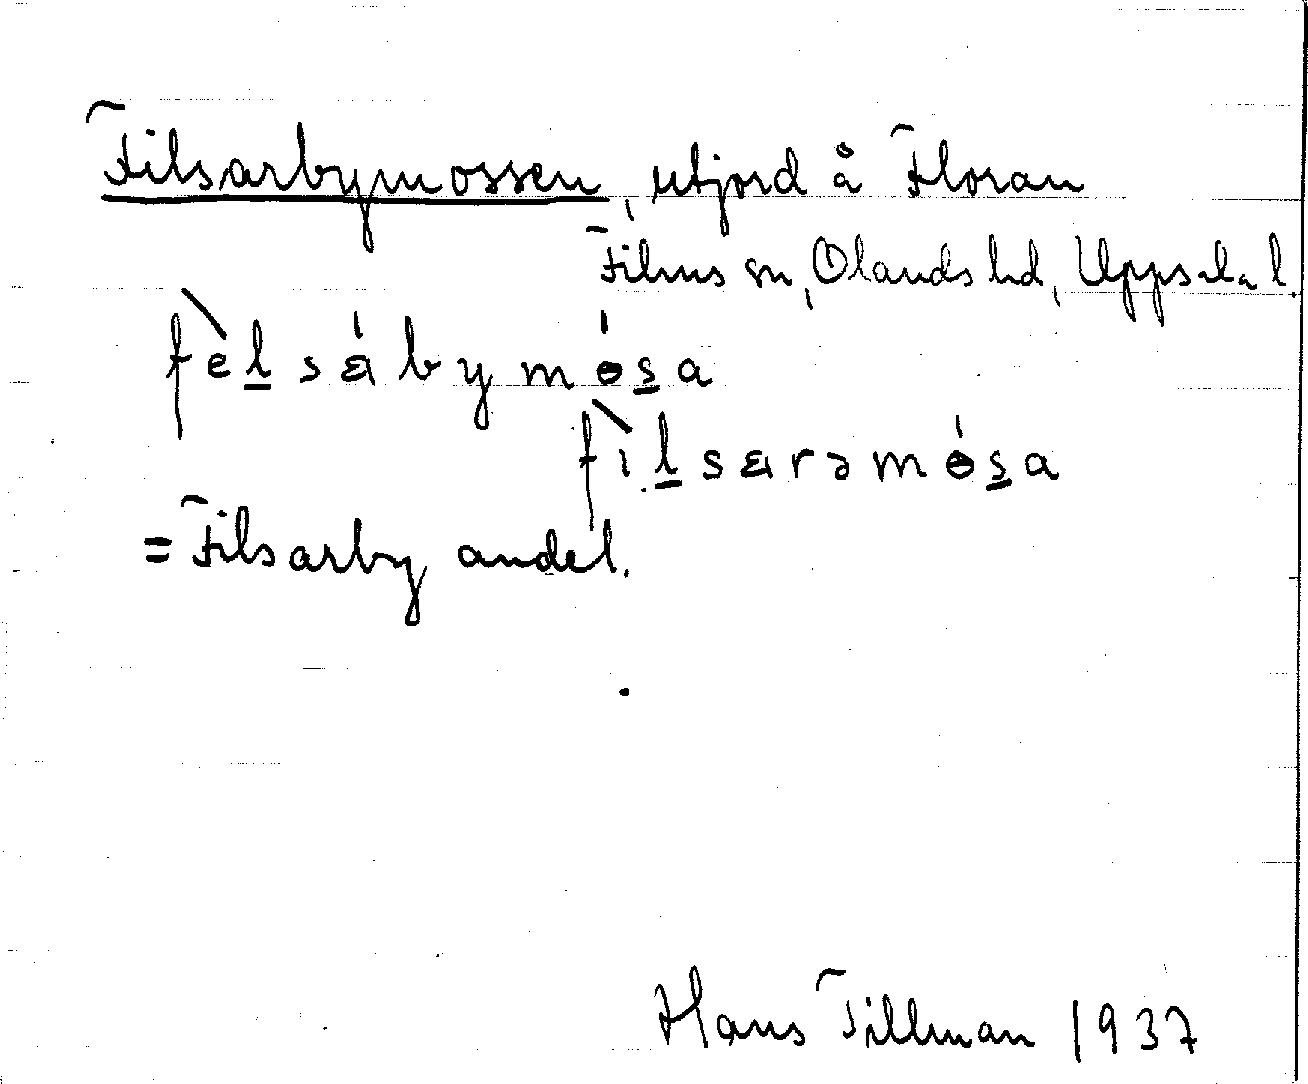 Filsarbymossen, utjord å Floran
Films sn, Olands hd, Uppsala l.
fèl̲sáby mó̵s̲a
fìl̲sarəmó̵s̲a
= Filsarby andel.
Hans Tillman 1937